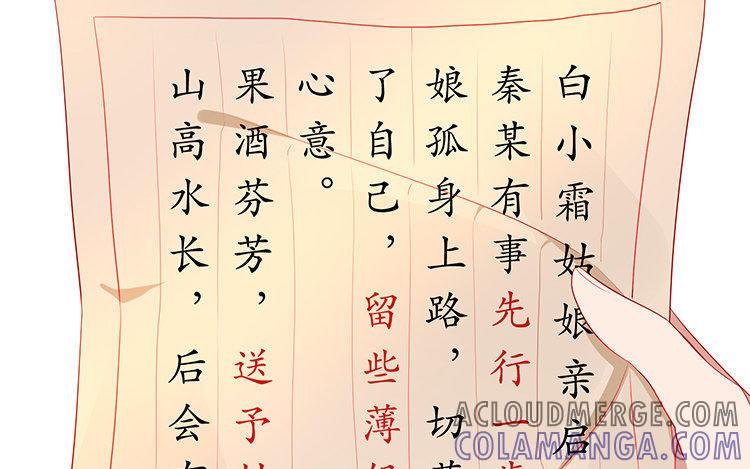 白小霜姑娘亲启
秦某有事先行一
娘孤身上路，切
了自己，留些薄
心意。
果酒芬芳，送予
山高水长，后会
ACLOUDMERGE.COM
COLAMANGA.COM